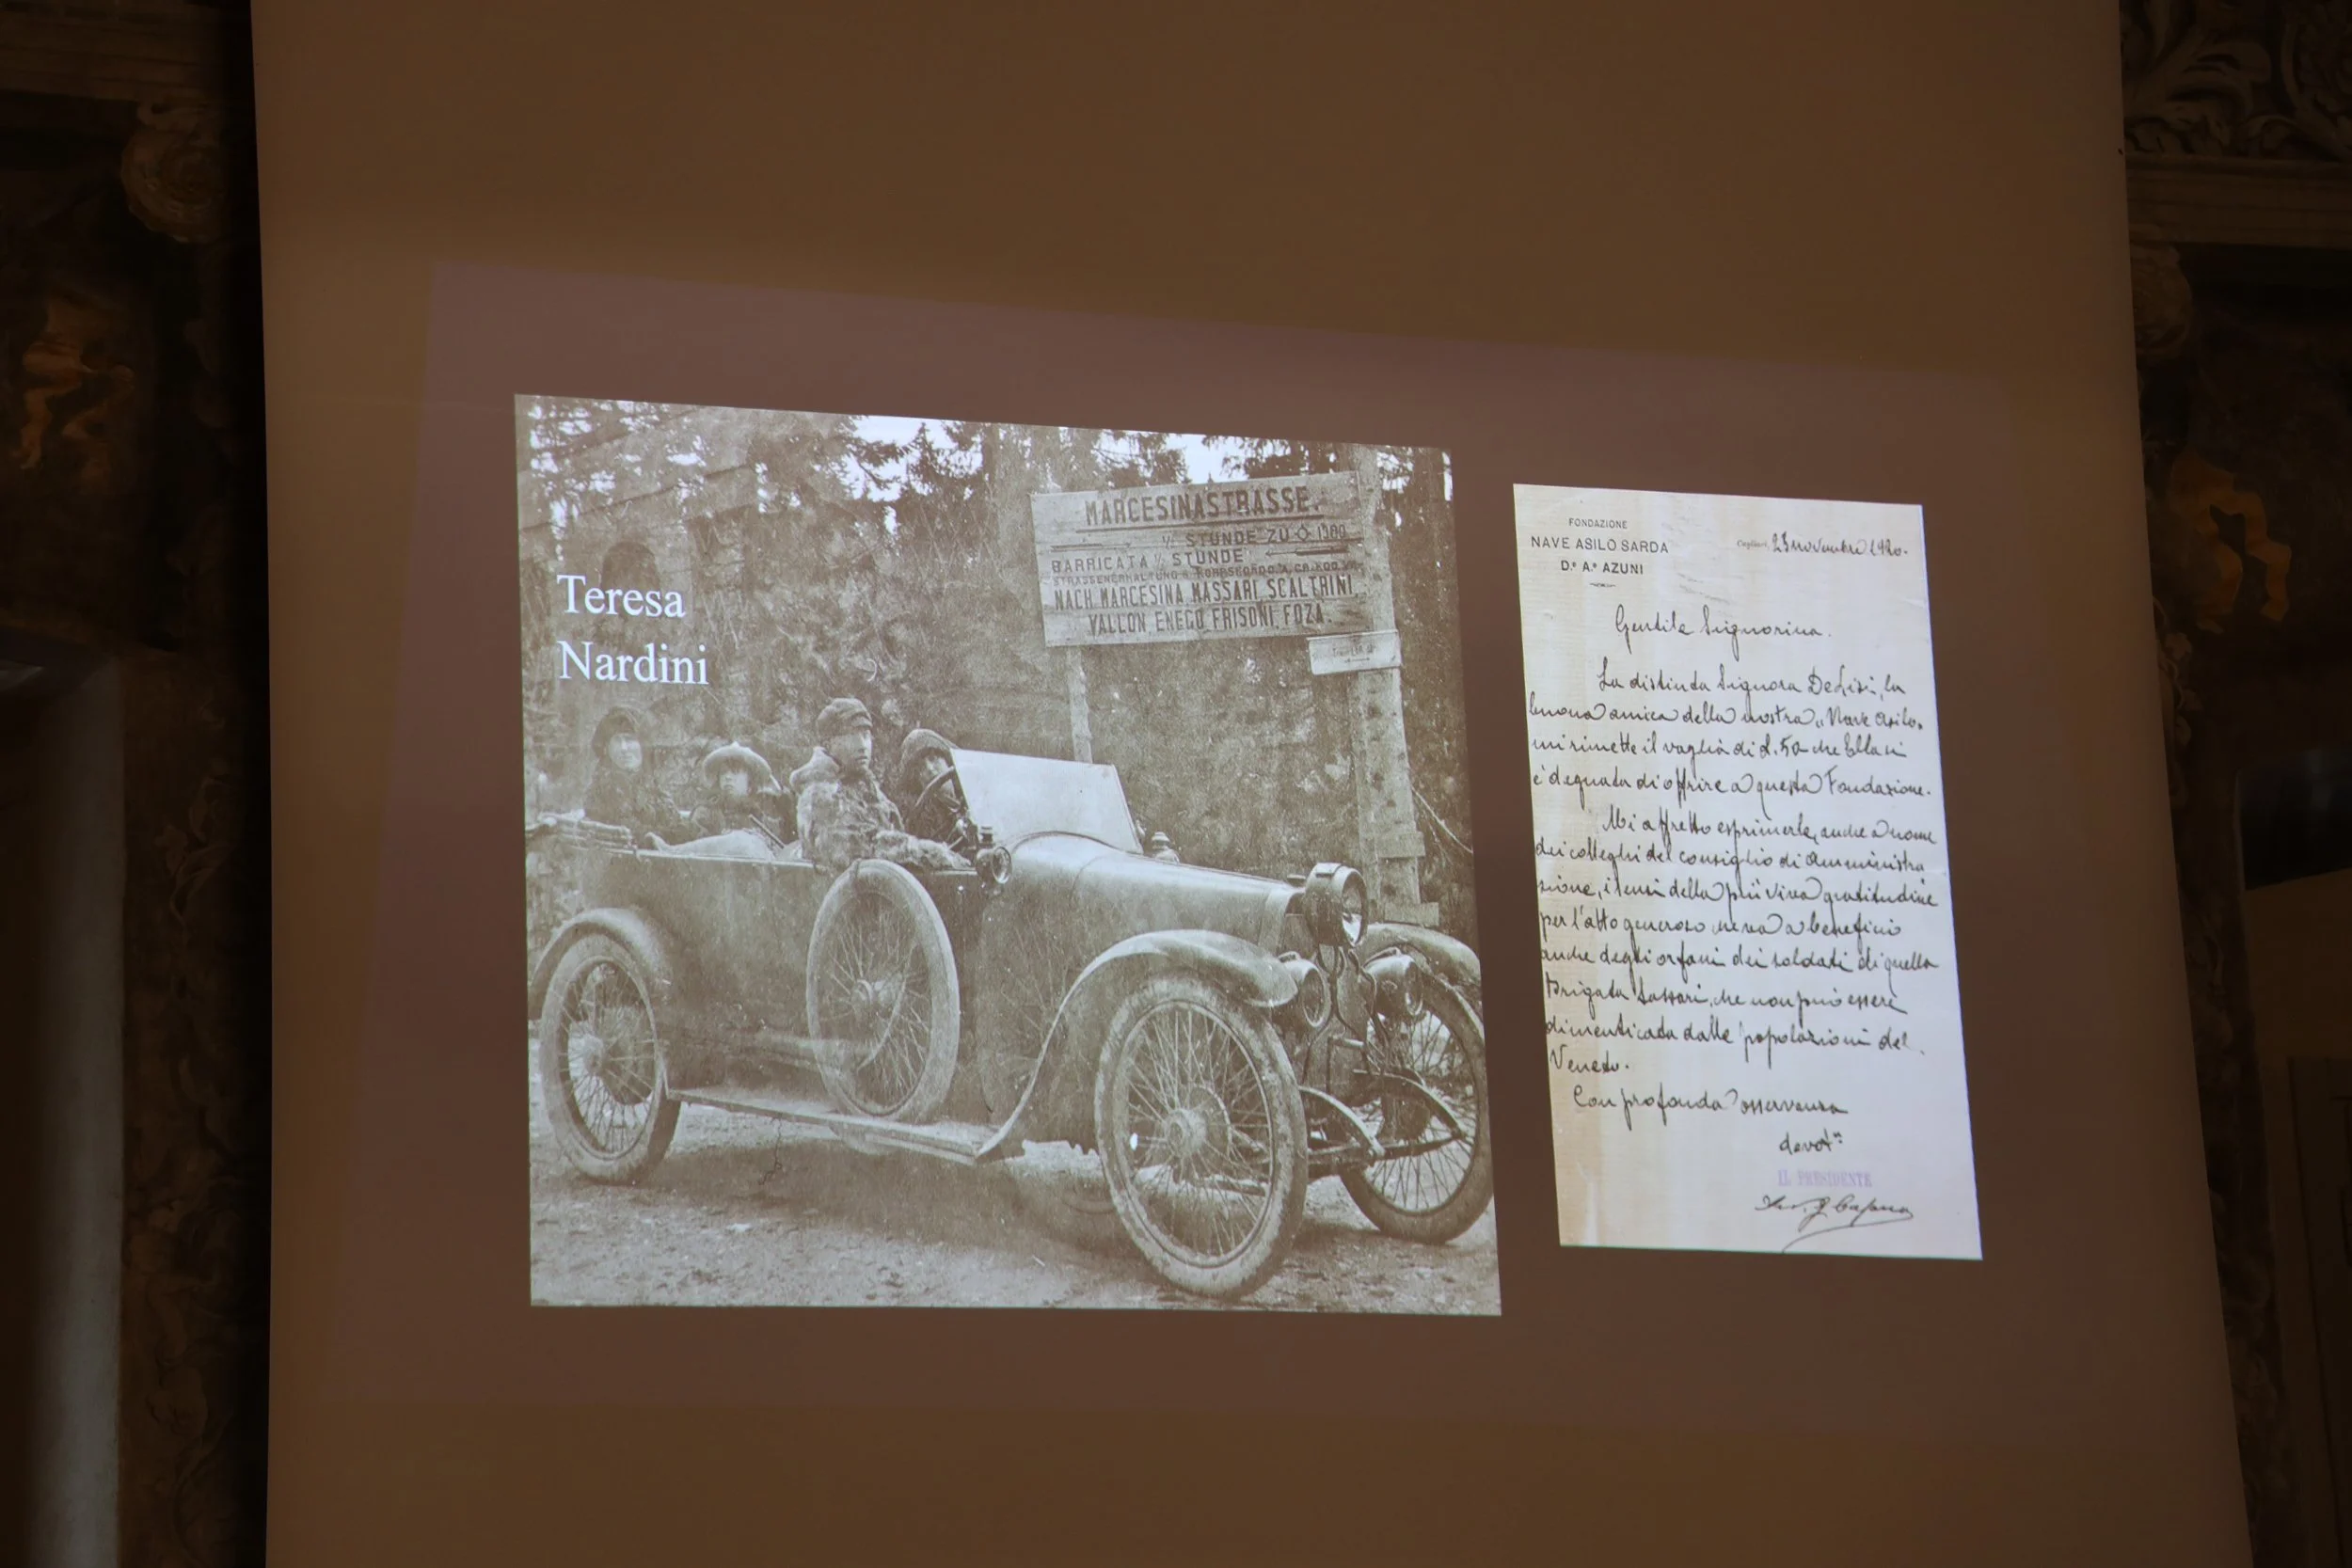 Teresa
Nardini
MARCESINASTRASSE.
½ STUNDE ZU 1380
BARRICATA ½ STUNDE
NACH MARCESINA, MASSARI, SCALTRINI,
VALLON, ENEGO, FRISONI, FOZA.
FONDAZIONE
NAVE ASILO SARDA
D.º A.º AZUNI
Cagliari, 23 novembre 1920.
Gentile Signorina.
La distinta Signora DeLisi, la
buona amica della nostra "Nave Asilo"
mi rimette il vaglia di L. 50 che Ella si
è degnata di offrire a questa Fondazione.
Mi affretto esprimerle, anche a nome
dei colleghi del consiglio di Amministra
zione, i sensi della più viva gratitudine
per l'atto generoso che va a beneficio
anche degli orfani dei soldati di quella
Brigata Sassari, che non può essere
dimenticata dalle popolazioni del
Veneto.
Con profonda osservanza
devot.
IL PRESIDENTE